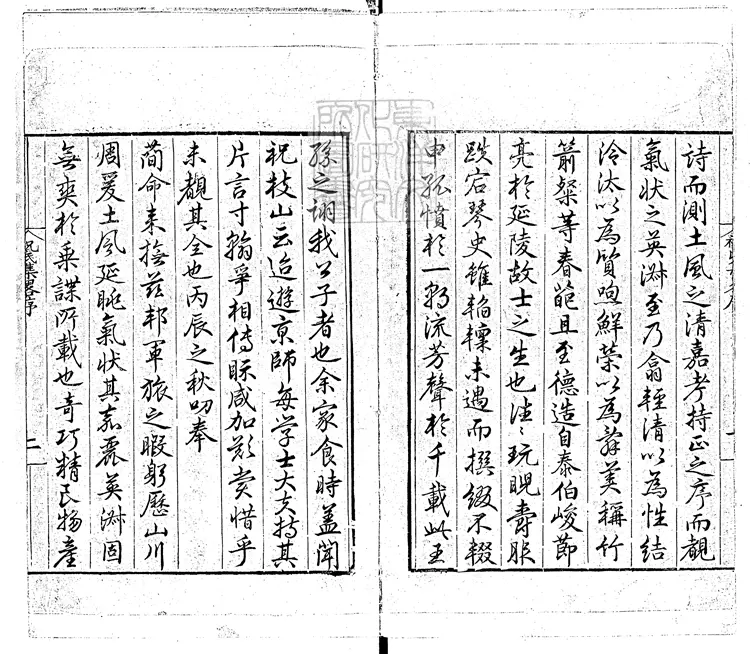 詩而測土風之清嘉考持正之序而覩
氣狀之英淑至乃翕輕清以為性結
泠汰以為質喣鮮榮以為辭美稱竹
箭粲等春葩且至德造自泰伯峻節
亮於延陵故士之生也往〻玩睨壽眹
跌宕琴史雖韜韞未遇而撰綴不輟
申孤憤於一鷊流芳聲於千載此王
孫之詡我公子者也余家食時盖聞
祝枝山云迨遊京師每学士大夫持其
片言寸翰爭相傳眎咸加歎賞惜乎
未覩其全也丙辰之秋叨奉
簡命来撫茲邦軍旅之暇躬歷山川
周爰土風延眺氣狀其嘉麗英淑固
無爽於乗諜所載也奇巧精民物產
祝氏集畧序
二